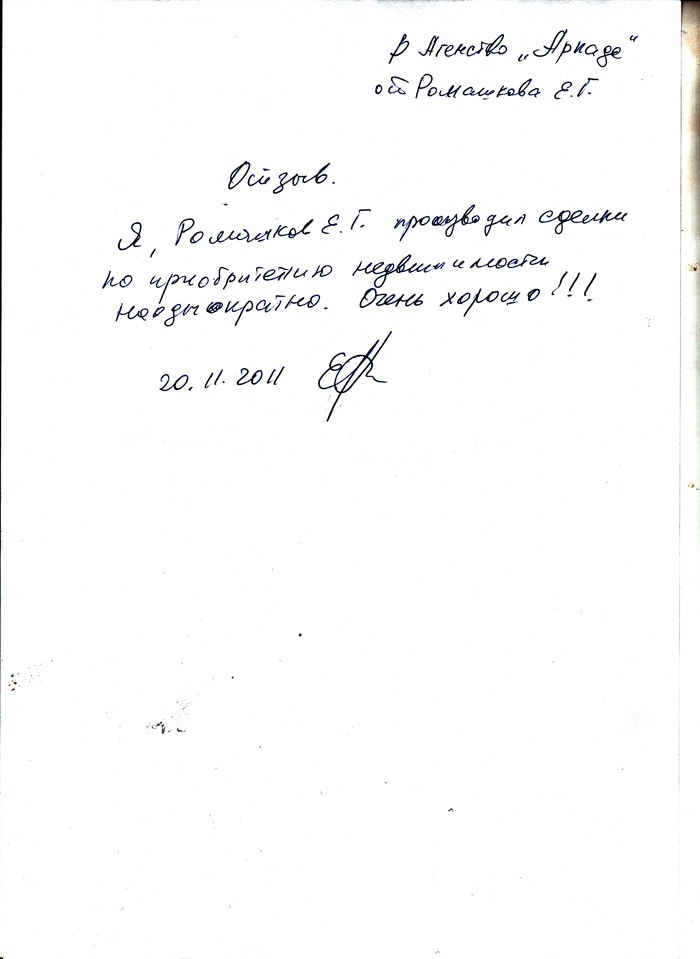 В Агенство „Аркаде“
от Ромашкова Е.Г.
Отзыв.
Я, Ромашков Е.Г. производил сделки
по приобритению недвижимости
неоднократно. Очень хорошо!!!
20.11.2011